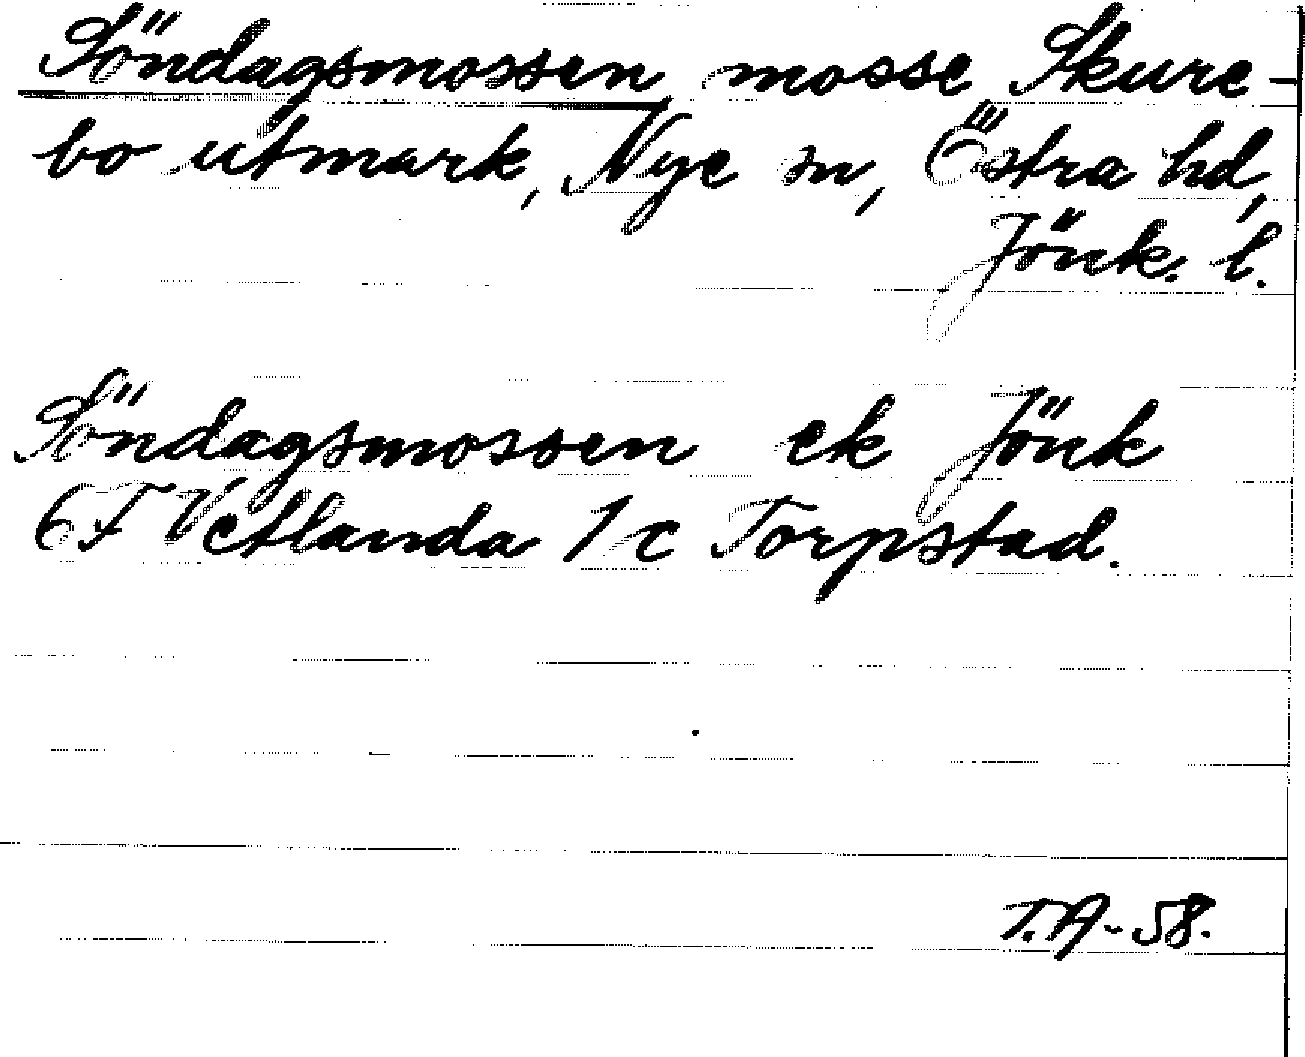 Söndagsmossen mosse Skure-
bo utmark, Nye sn, Östra hd,
Jönk. l.
Söndagsmossen ek Jönk
6F Vetlanda 1c Torpstad.
T.A-58.